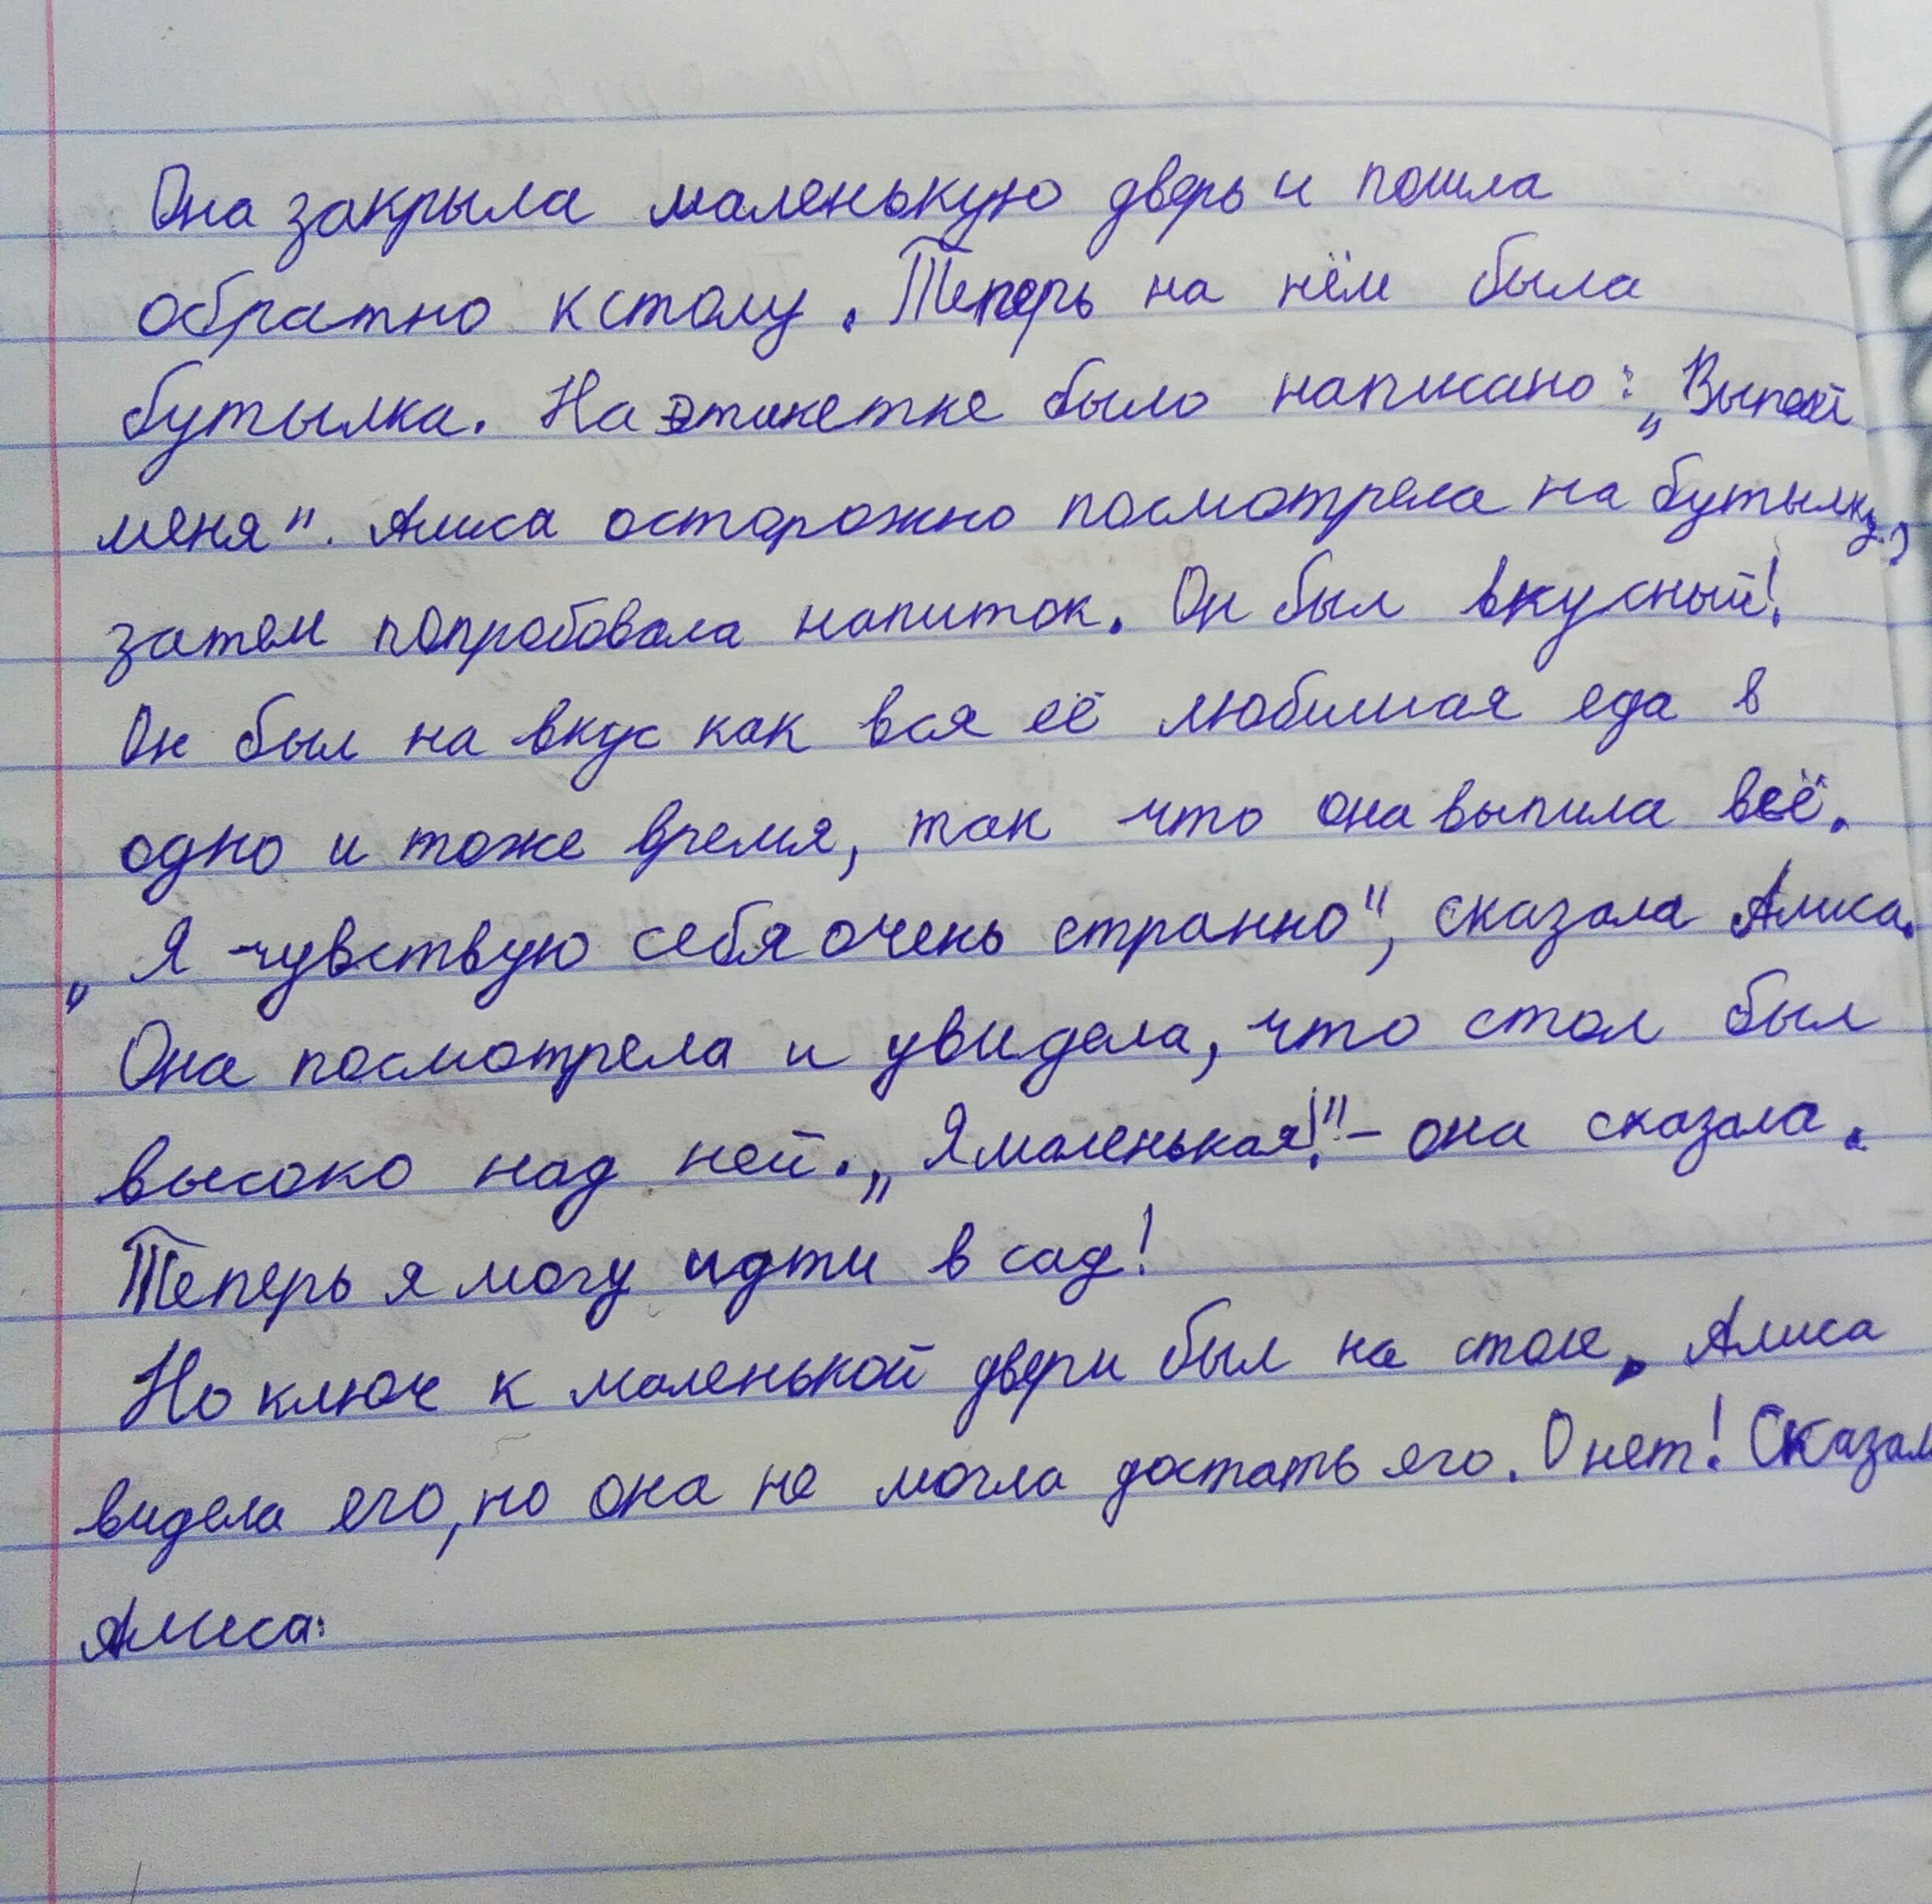 Она закрыла маленькую дверь и пошла
обратно к столу. Теперь на нём была
бутылка. На этикетке было написано: „Выпей
меня". Алиса осторожно посмотрела на бутылку,
затем попробовала напиток. Он был вкусный!
Он был на вкус как вся её любимая еда в
одно и тоже время, так что она выпила всё.
„Я чувствую себя очень странно", сказала Алиса.
Она посмотрела и увидела, что стол был
высоко над ней. „Я маленькая!" – она сказала.
Теперь я могу идти в сад!
Но ключ к маленькой двери был на столе. Алиса
видела его, но она не могла достать его. О нет! Сказал
Алиса: